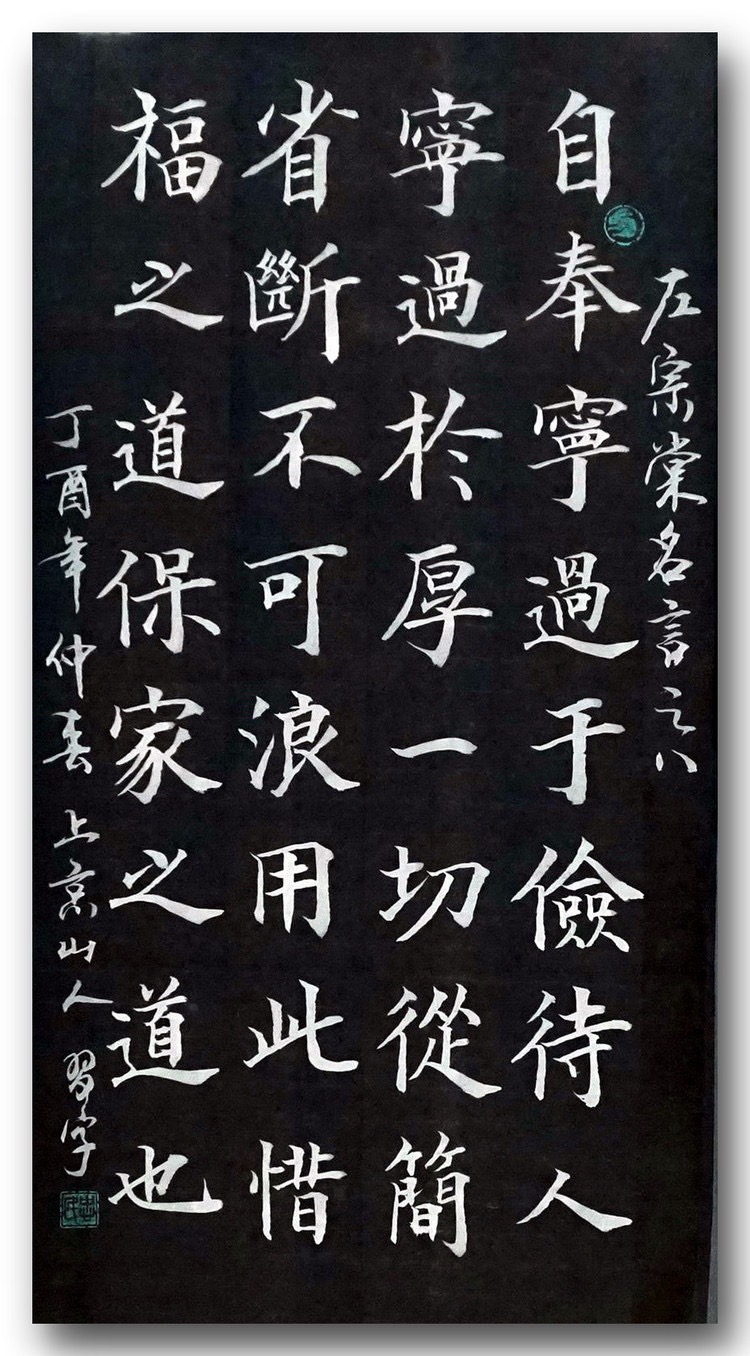 左宗棠名言之八
自奉寧過于儉待人
寧過於厚一切從簡
省斷不可浪用此惜
福之道保家之道也
丁酉年仲春上京山人習字